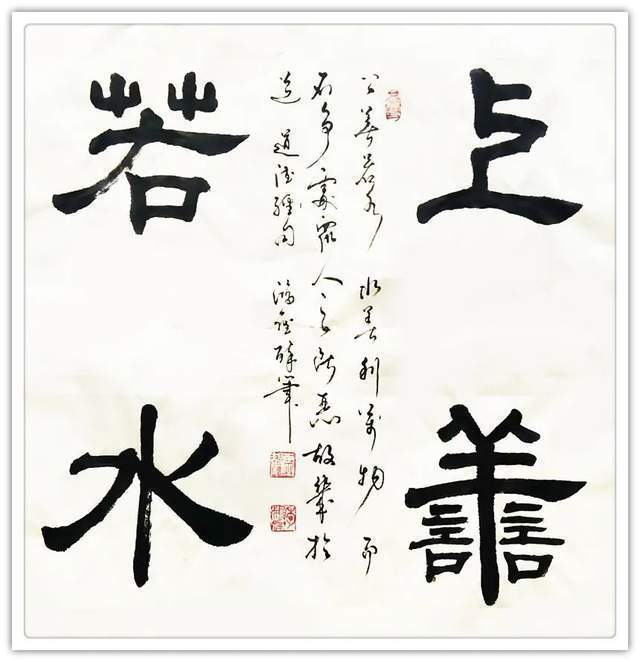 上譱
若水
上善若水 水善利萬物 而
不爭處衆人之所惡故幾於
道 道德經句